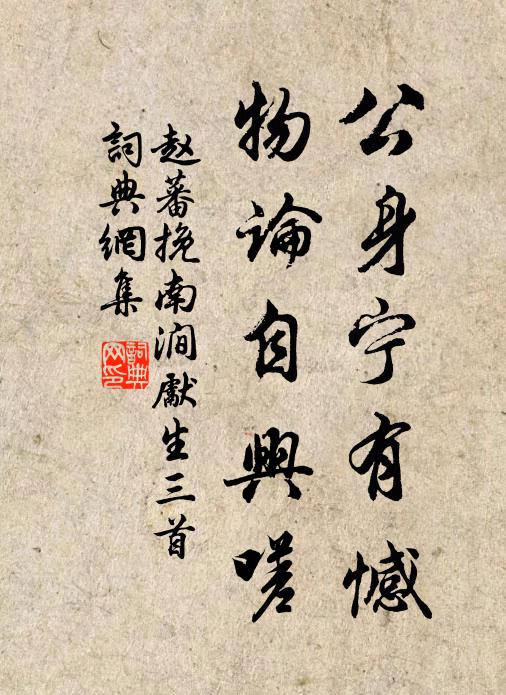 公身宁有憾
物論自興嗟
赵蕃挽南涧獻生三首
詞典網集
詞典网印